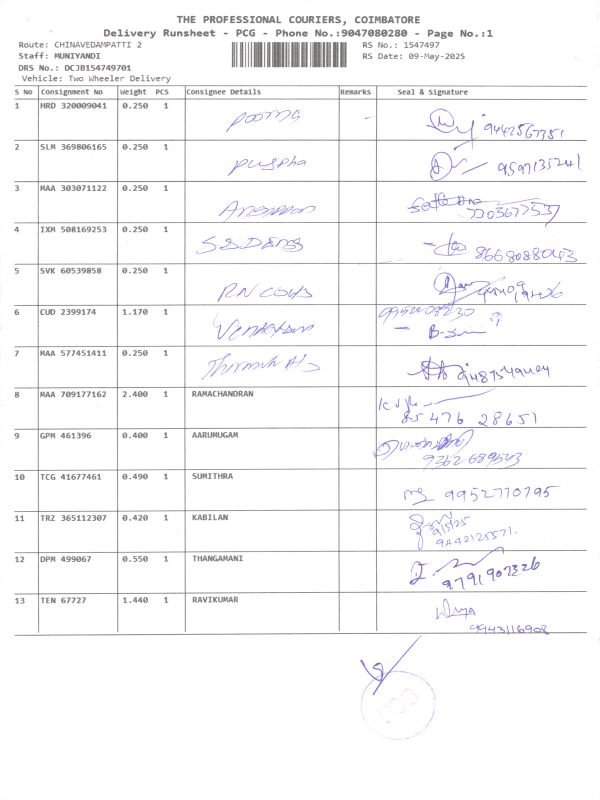 THE PROFESSIONAL COURIERS, COIMBATORE
Delivery Runsheet - PCG - Phone No.:9047080280 - Page No.:1
Route: CHINAVEDAMPATTI 2 RS No.: 1547497
Staff: MUNIYANDI RS Date: 09-May-2025
DRS No.: DCJB154749701
Vehicle: Two Wheeler Delivery
S No Consignment No Weight PCS Consignee Details Remarks Seal & Signature
1 HRD 320009041 0.250 1 9442567351
2 SLM 369806165 0.250 1 puspha 9597135241
3 MAA 303071122 0.250 1
4 IXM 508169253 0.250 1 8668088043
5 SVK 60539858 0.250 1
6 CUD 2399174 1.170 1
7 MAA 577451411 0.250 1
8 MAA 709177162 2.400 1 RAMACHANDRAN
85 476 28651
9 GPM 461396 0.400 1 AARUMUGAM
9362689543
10 TCG 41677461 0.490 1 SUMITHRA 9952710795
11 TRZ 365112307 0.420 1 KABILAN
9/5/25
9442125571.
12 DPM 499067 0.550 1 THANGAMANI
13 TEN 67727 1.440 1 RAVIKUMAR
9943116908